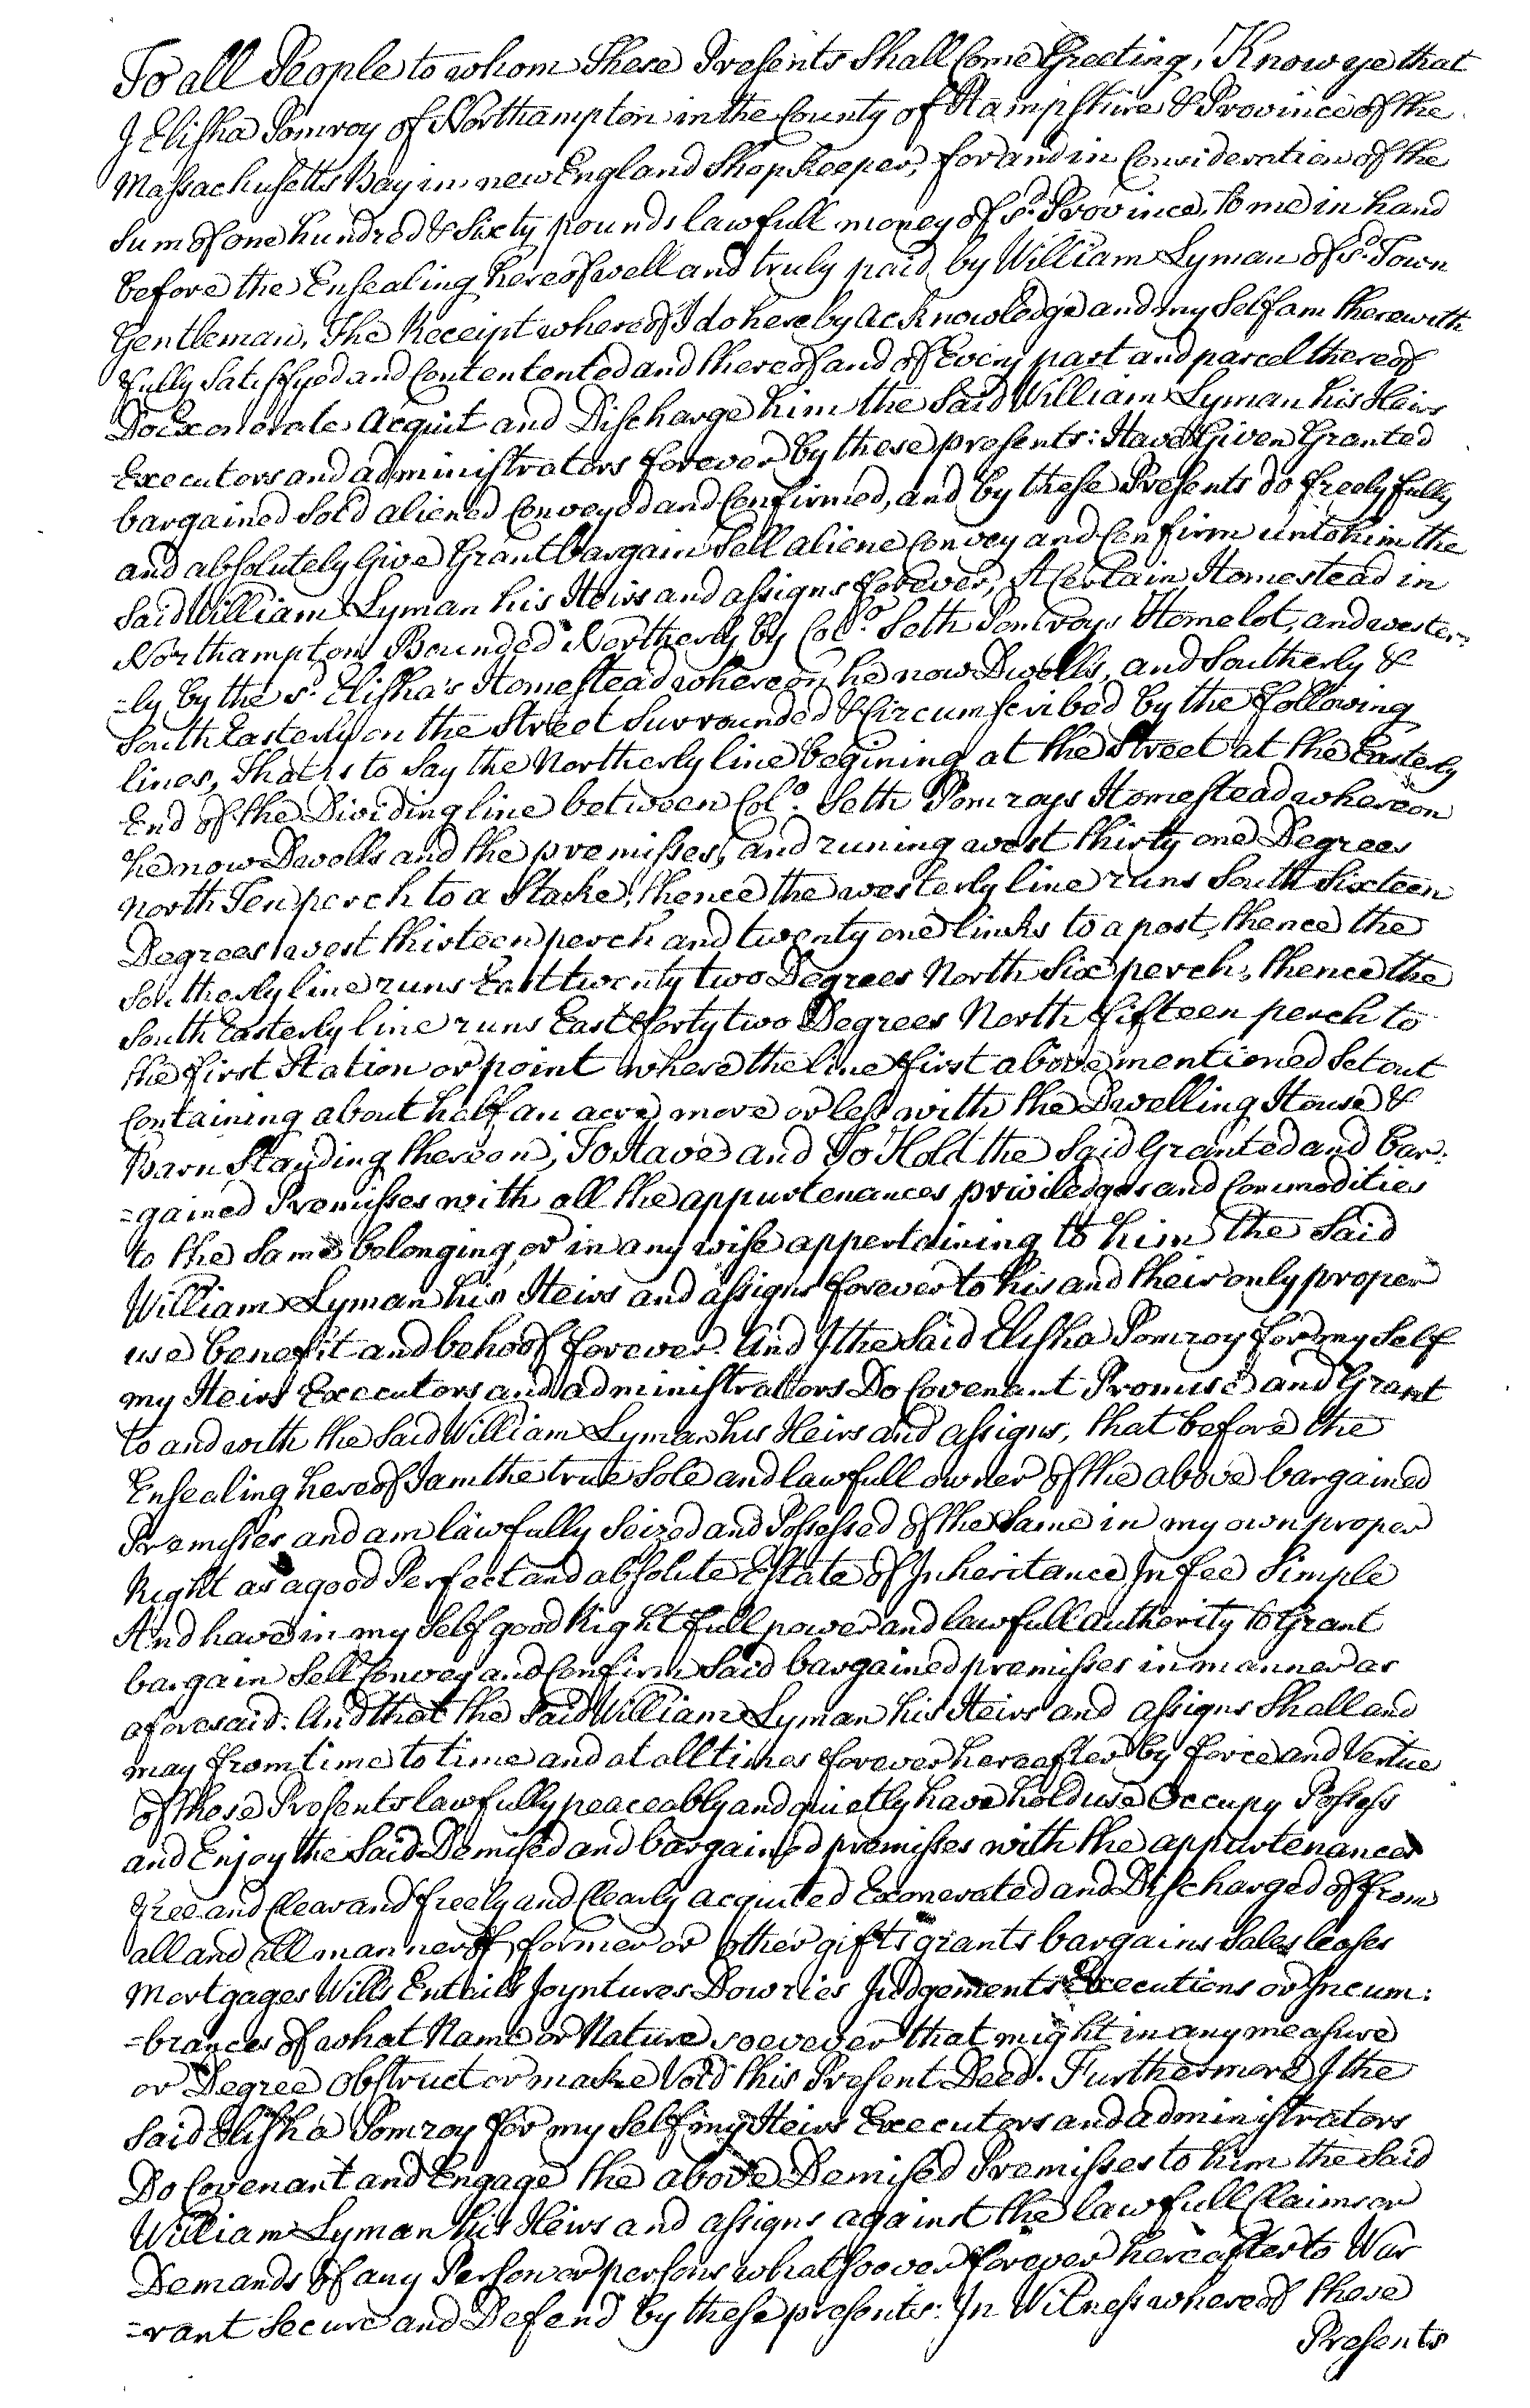 To all People to whom These Presents Shall Come Greeting, Know ye that
I Elisha Pomroy of Northampton in the County of Hampshire & Province of the
Massachusetts Bay in new England Shopkeeper, for and in Consideration of the
Sum of one hundred & Sixty pounds lawfull money of sd. Province, To me in hand
before the Ensealing hereof well and truly paid by William Lyman of sd. Town
Gentleman, The Receipt whereof I do hereby acknowledge and my Self am therewith
fully Satisfyed and Contentented and thereof and of Every part and parcel thereof
Do Exonerate Acquit and Discharge him the Said William Lyman his Heirs
Executors and administrators forever by these presents: Have Given Granted
bargained Sold aliened Conveyed and Confirmed, and by these Presents do freely fully
and absolutely Give Grant bargain Sell aliene Convey and Confirm unto him the
Said William Lyman his Heirs and assigns forever, A Certain Homestead in
Northampton Bounded Northerly by Colo. Seth Pomroys Homelot, and wester-
=ly by the sd. Elisha's Homestead whereon he now Dwells, and Southerly &
South Easterly on the Street Surrounded & Circumscribed by the following
lines, That is to Say the Northerly line begining at the Street at the Easterly
End of the Dividing line between Colo. Seth Pomroys Homestead whereon
he now Dwells and the premisses, and runing west thirty one Degrees
North Ten perch to a Stake, thence the westerly line runs South Sixteen
Degrees west thirteen perch and twenty one links to a post, thence the
Southerly line runs East twenty two Degrees North Six perch, thence the
South Easterly line runs East forty two Degrees North fifteen perch to
the first Station or point where the line first above mentioned Set out
Containing about half an acre more or less with the Dwelling House &
Barn Standing thereon, To Have and To Hold the Said Granted and bar:
=gained Premisses with all the appurtenances priviledges and Commodities
to the Same belonging or in any wise appertaining to him the Said
William Lyman his Heirs and assigns forever to his and their only proper
use benefit and behoof forever. And I the Said Elisha Pomroy for my Self
my Heirs Executors and administrators Do Covenant Promise and Grant
to and with the Said William Lyman his Heirs and assigns, that before the
Ensealing hereof I am the true Sole and lawfull owner of the above bargained
Premisses and am lawfully Seized and Possessed of the Same in my own proper
Right as a good Perfect and absolute Estate of Inheritance In fee Simple
And have in my Self good Right full power and lawfull authority to Grant
bargain Sell Convey and Confirm Said bargained premisses in manner as
aforesaid: And that the Said William Lyman his Heirs and assigns Shall and
may from time to time and at all times forever hereafter by force and Vertue
of these Presents lawfully peaceably and quietly have hold use Occupy Possess
and Enjoy the Said Demised and bargained premisses with the appurtenances
Free and Clear and freely and Clearly acquited Exonerated and Discharged of from
all and all manner of former or other gifts grants bargains Sales leases
Mortgages Wills Entails Joyntures Dowries Judgements Executions or Incum:
=brances of what Name or Nature soevever that might in any measure
or Degree obstruct or make Void this Present Deed. Furthermore I the
Said Elisha Pomroy for my Self my Heirs Executors and administrators
Do Covenant and Engage the above Demised Premisses to him the Said
William Lyman his Heirs and assigns against the lawfull Claims or
Demands of any Person or persons whatsoever forever hereafter to War
=rant Secure and Defend by these presents: In Witness whereof these
Presents